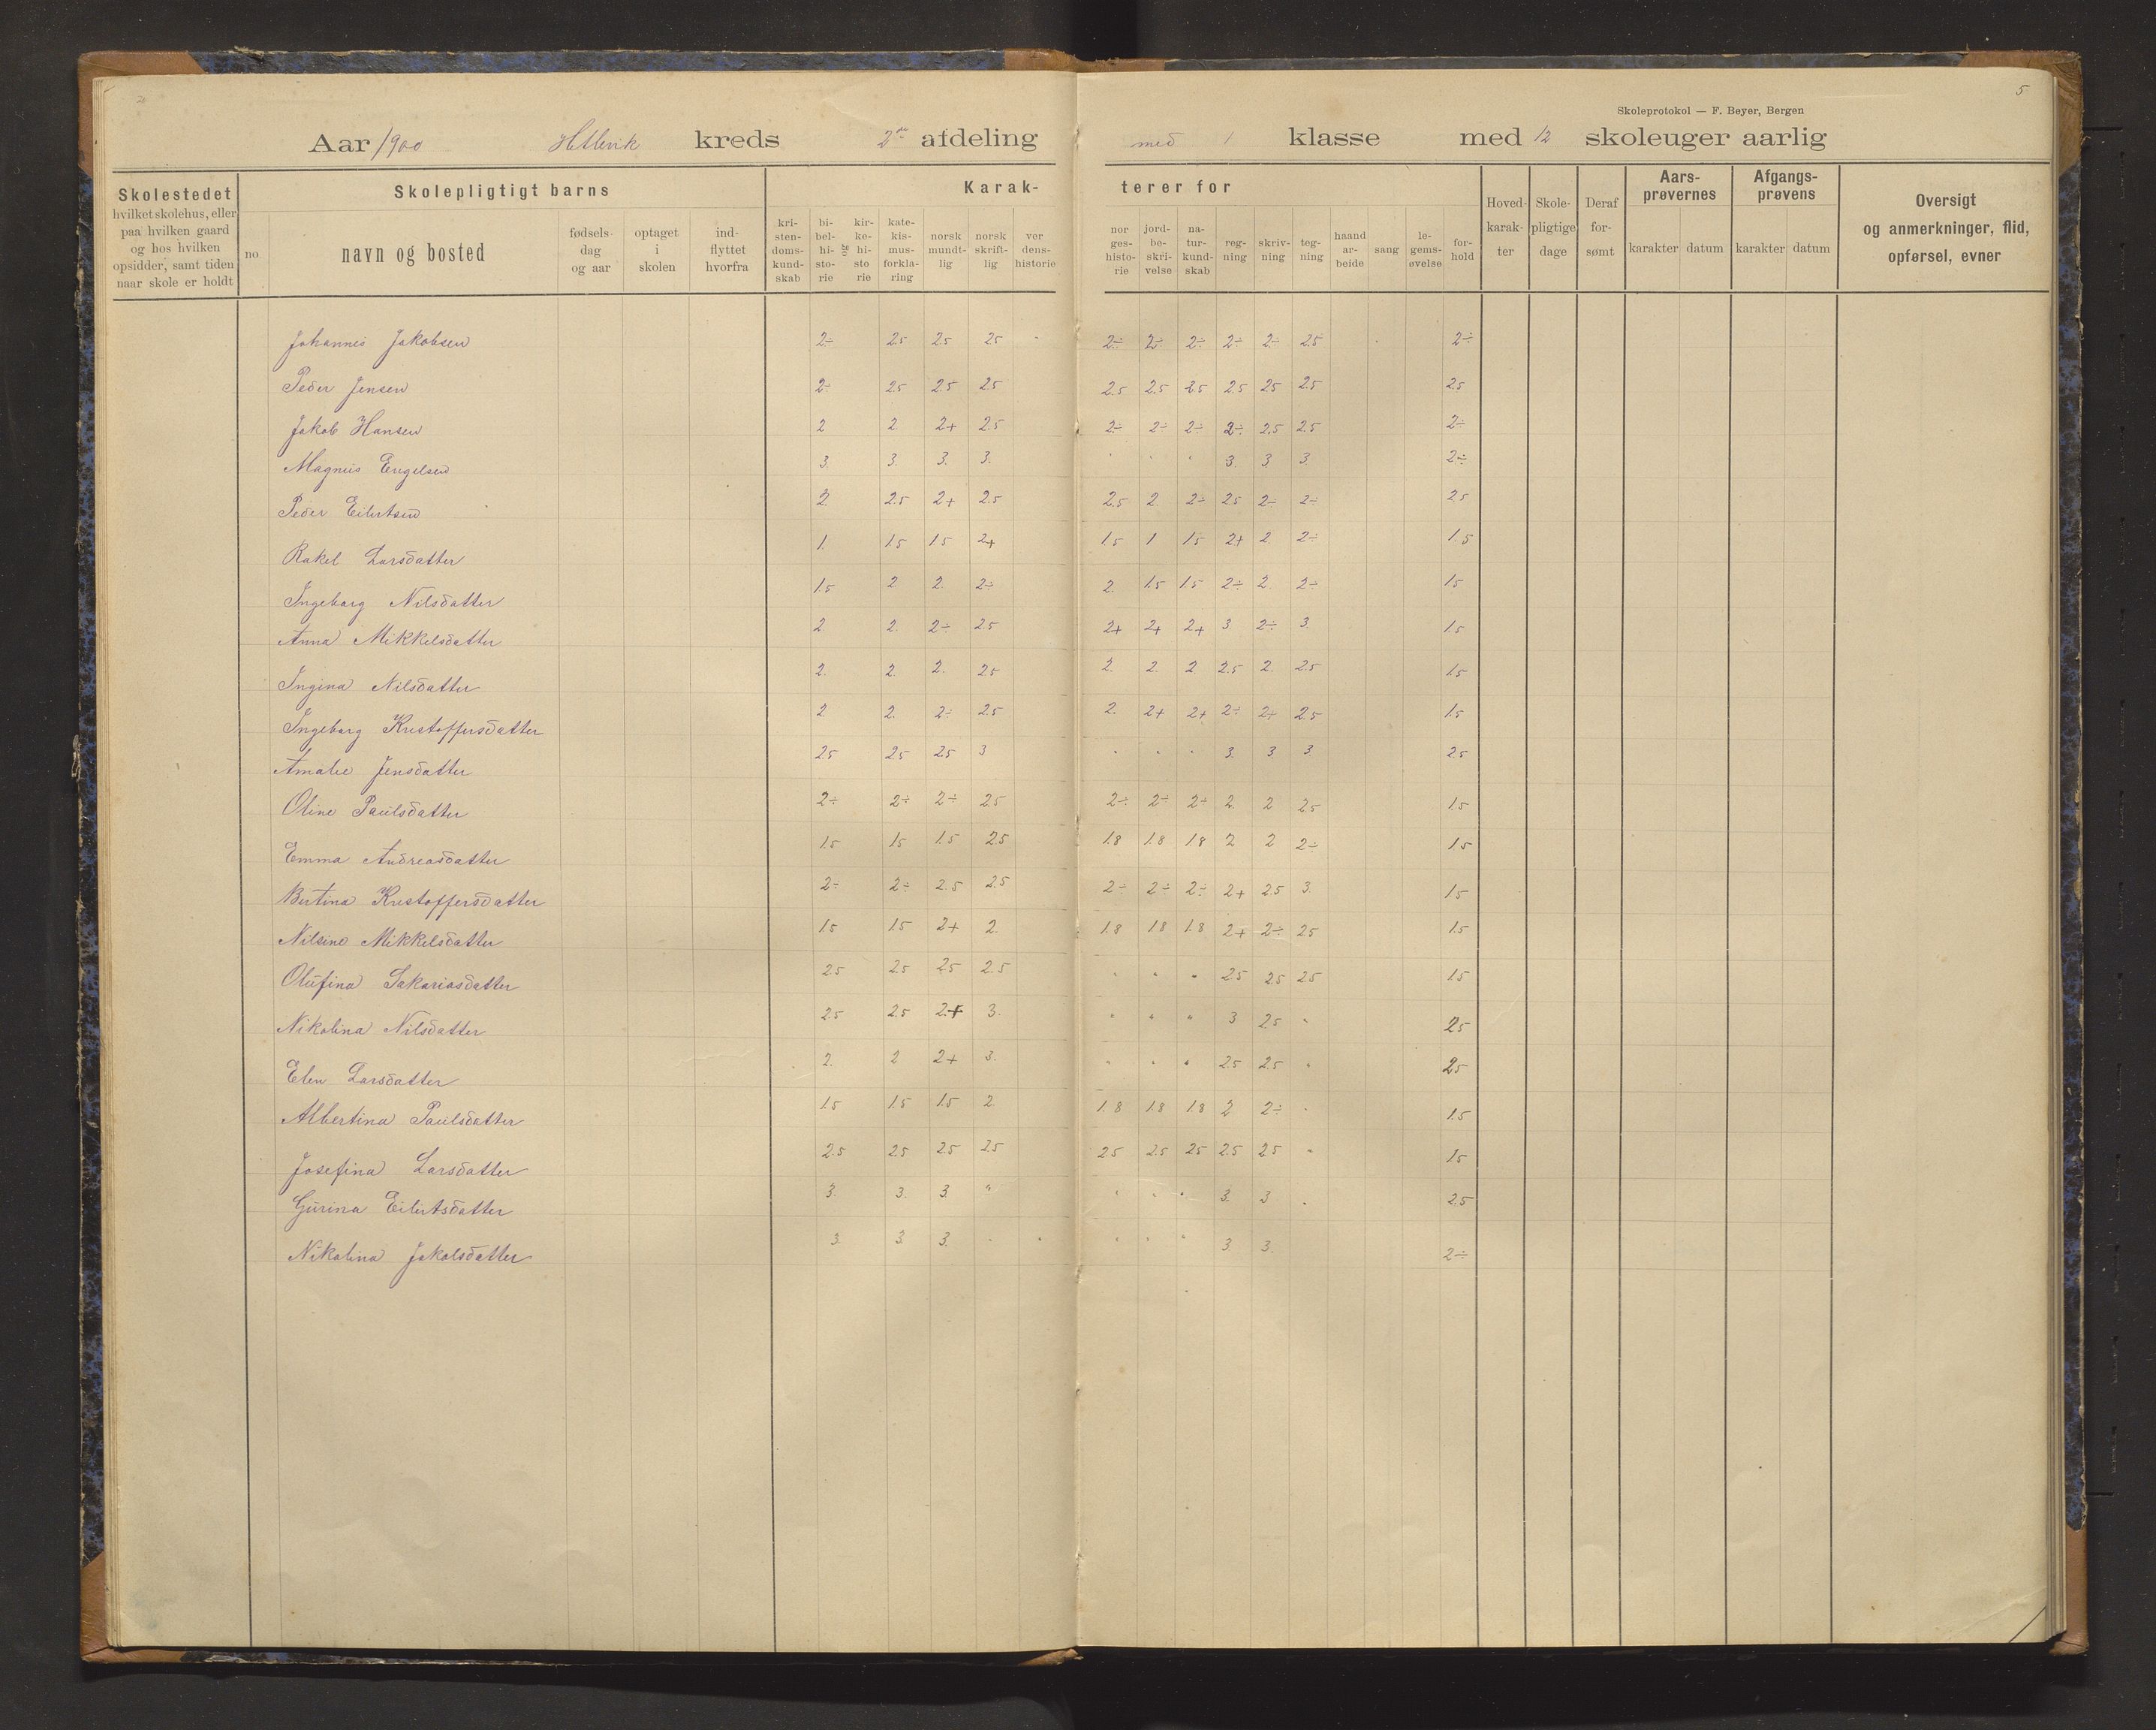 5
Skoleprotokol — F. Beyer, Bergen
Aar 1900 kreds 2den afdeling med 1 klasse med 12 skoleuger aarlig
Skolestedet hvilket skolehus, eller paa hvilken gaard og hos hvilken opsidder, samt tiden naar skole er holdt
Skolepligtigt barns
no navn og bosted fødselsdag og aar optaget i skolen indflyttet hvorfra
Karakterer for
kristendomskundskab bibelhistorie og kirkehistorie katekismusforklaring norsk mundtlig norsk skriftlig verdenshistorie norgeshistorie jordbeskrivelse naturkundskab regning skrivning tegning haandarbeide sang legemsøvelse forhold
Hovedkarakter Skolepligtige dage Deraf forsømt
Aarsprøvernes karakter datum
Afgangsprøvens karakter datum
Oversigt og anmerkninger, flid, opførsel, evner
Johannes Jakobsen 2÷ 2.5 2.5 2.5 2÷ 2÷ 2÷ 2÷ 2÷ 2.5 2÷
Peder Jensen 2÷ 2.5 2.5 2.5 2.5 2.5 2.5 2.5 2.5 2.5 2.5
Jakob Hansen 2 2 2+ 2.5 2÷ 2÷ 2÷ 2÷ 2.5 2.5 2÷
Magnus Engelsen 3. 3. 3. 3. " " " 3. 3. 3. 2÷
Peder Eilertsen 2 2.5 2+ 2.5 2.5 2. 2÷ 2.5 2÷ 2÷ 2.5
Rakel Larsdatter 1. 1.5 1.5 2+ 1.5 1 1.5 2+ 2 2÷ 1.5
Ingeborg Nilsdatter 1.5 2 2. 2÷ 2. 1.5 1.5 2÷ 2. 2÷ 1.5
Anna Mikkelsdatter 2 2. 2÷ 2.5 2+ 2+ 2+ 3 2÷ 3. 1.5
Ingina Nilsdatter 2. 2. 2. 2.5 2. 2. 2 2.5 2. 2.5 1.5
Ingeborg Kristoffersdatter 2 2. 2÷ 2.5 2. 2+ 2+ 2÷ 2÷ 2.5 1.5
Amalie Jensdatter 2.5 2.5 2.5 3 " " " 3. 3. 3 2.5
Oline Paulsdatter 2÷ 2÷ 2÷ 2.5 2÷ 2÷ 2÷ 2. 2 2.5 1.5
Emma Andreasdatter 1.5 1.5 1.5 2.5 1.8 1.8 1.8 2 2 2÷ 1.5
Bertina Kristoffersdatter 2÷ 2÷ 2.5 2.5 2÷ 2÷ 2÷ 2+ 2.5 3. 1.5
Nilsine Mikkelsdatter 1.5 1.5 2+ 2. 1.8 1.8 1.8 2+ 2÷ 2.5 1.5
Olufina Sakariasdatter 2.5 2.5 2.5 2.5 " " " 2.5 2.5 2.5 1.5
Nikolina Nilsdatter 2.5 2.5 2+ 3. " " " 3 2.5 " 2.5
Elen Larsdatter 2. 2 2+ 3. " " " 2.5 2.5 " 2.5
Albertina Paulsdatter 1.5 1.5 1.5 2 1.8 1.8 1.8 2 2÷ " 1.5
Josefina Larsdatter 2.5 2.5 2.5 2.5 2.5 2.5 2.5 2.5 2.5 " 1.5
Gurina Eilertsdatter 3. 3. 3 " " " " 3. 3 " 2.5
Nikolina Jakobsdatter 3. 3. 3. " " " " " 3. 3. 2÷